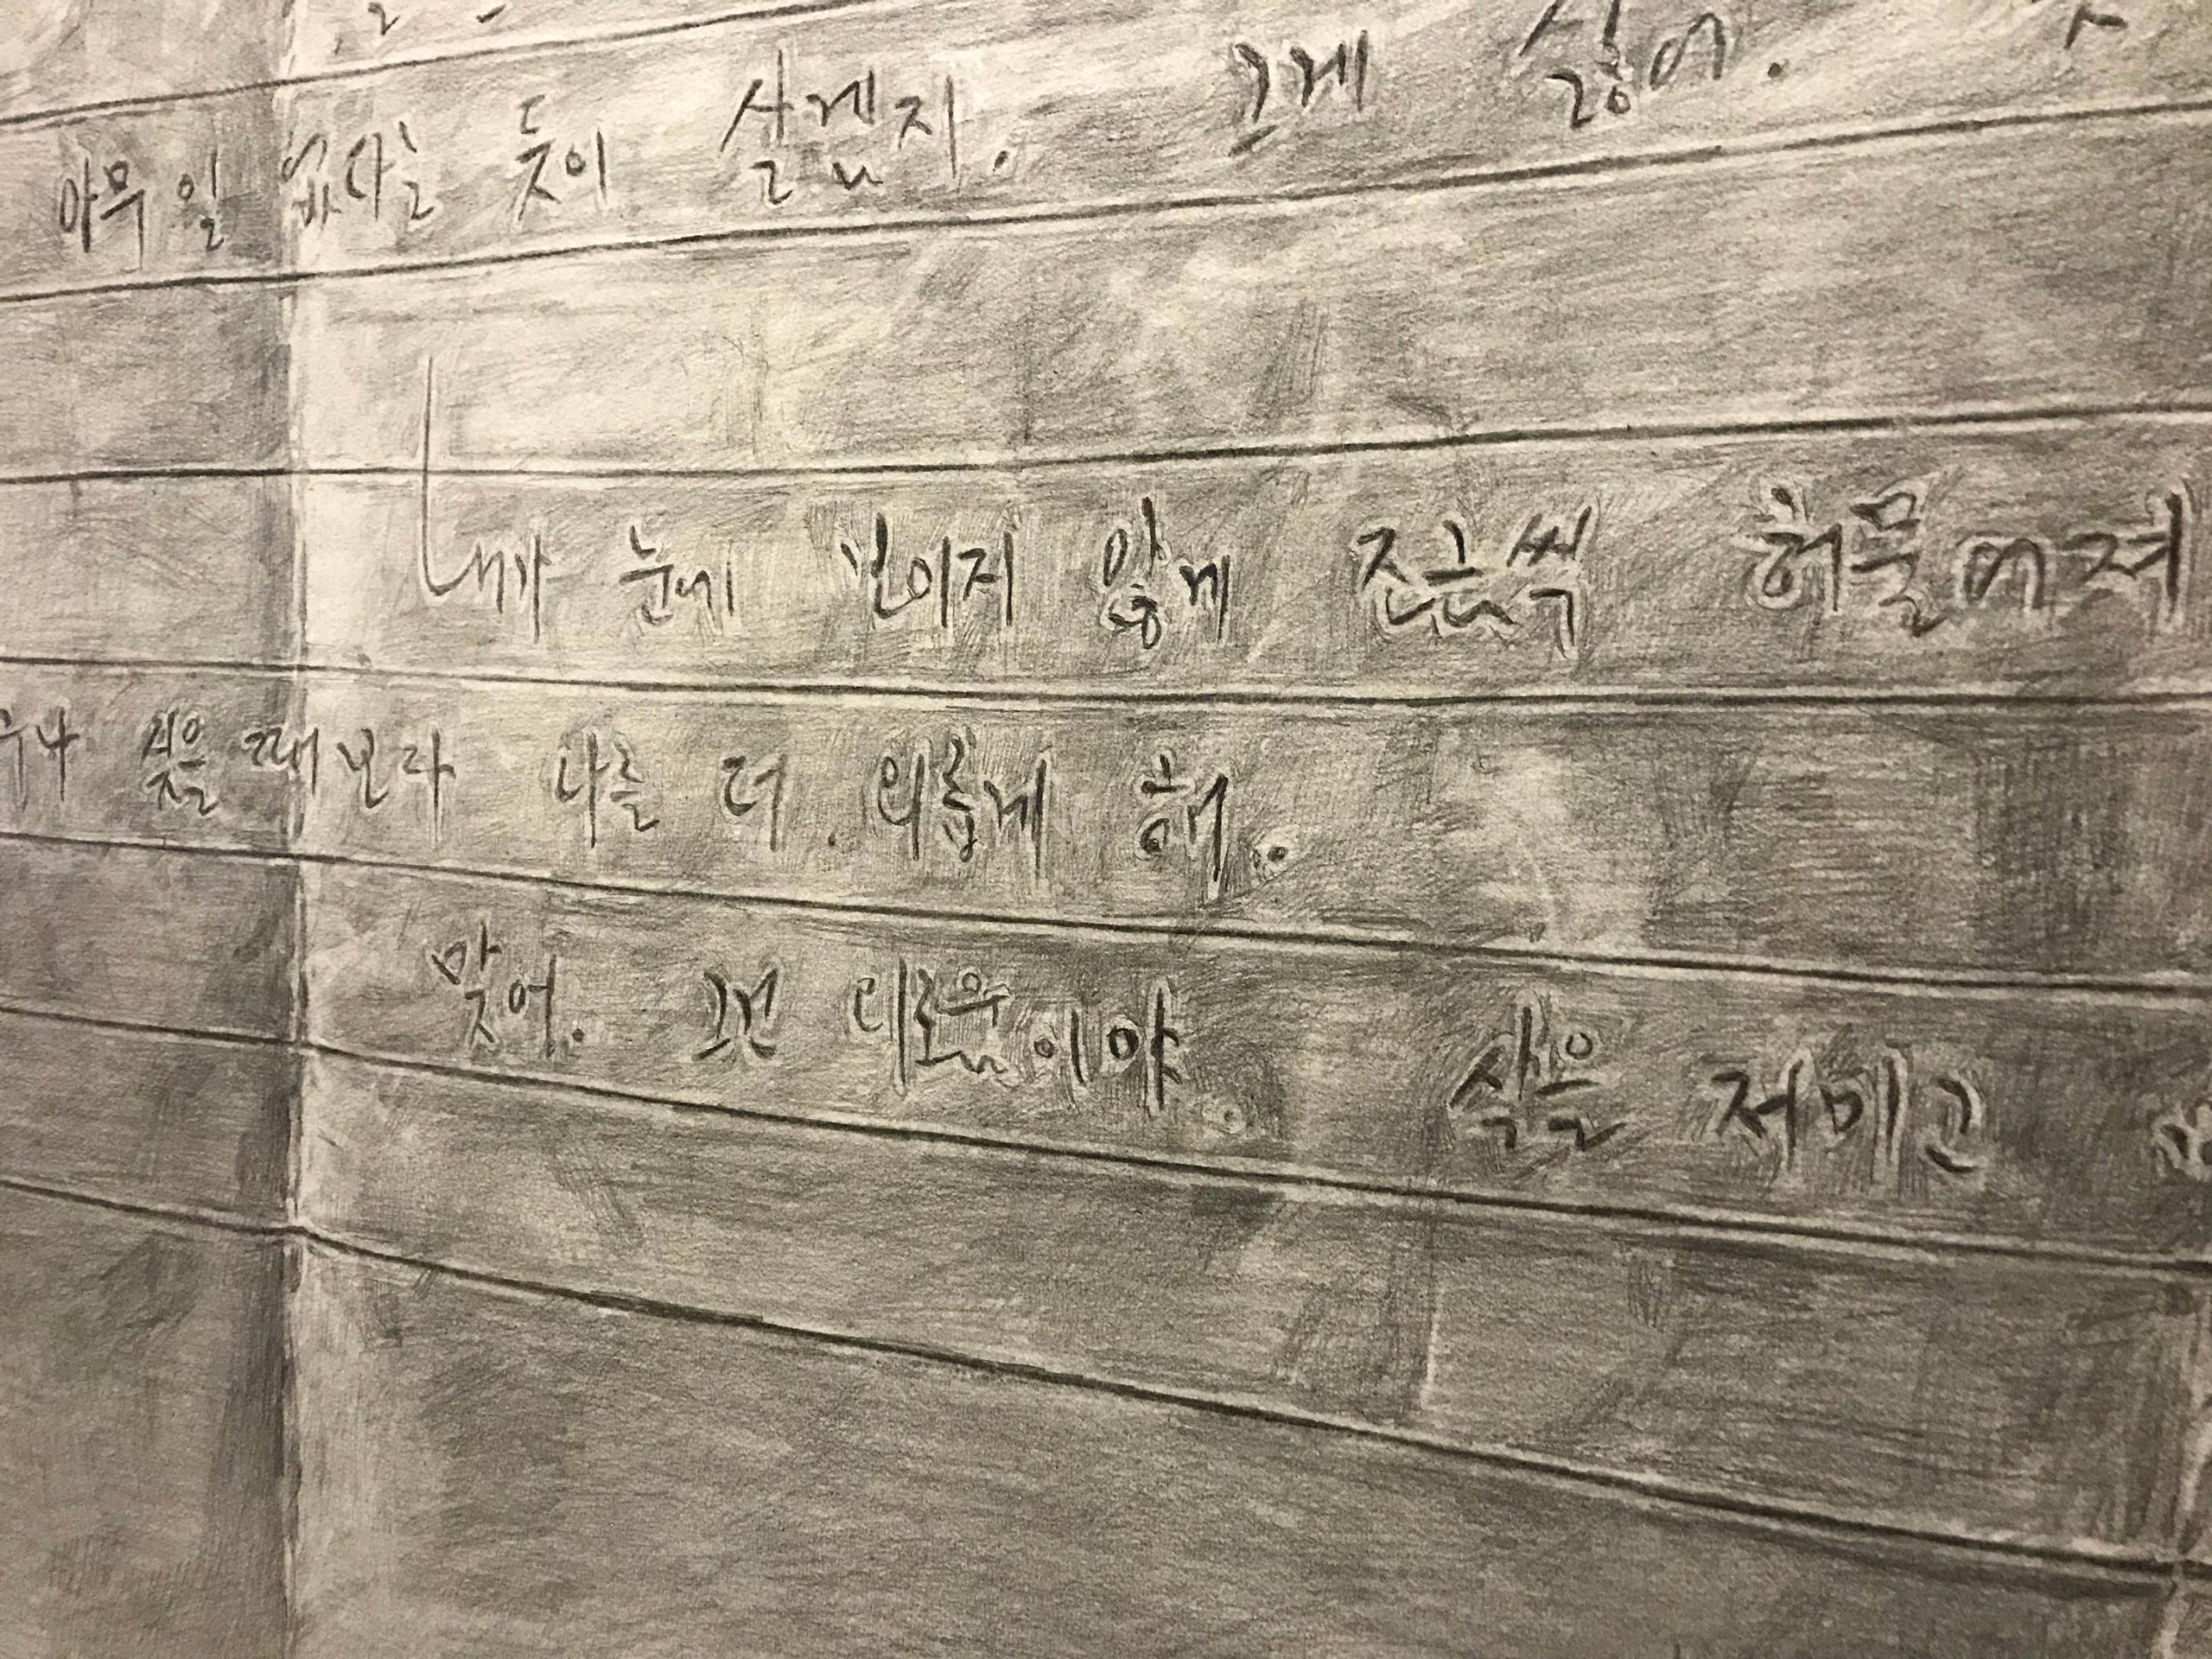 아무 일 없다는 듯이 살겠지. 그게 싫어.
내가 눈에 보이지 않게 조금씩 허물어져
싶을 때보다 나를 더 외롭게 해.
맞어. 그건 살을 저미고